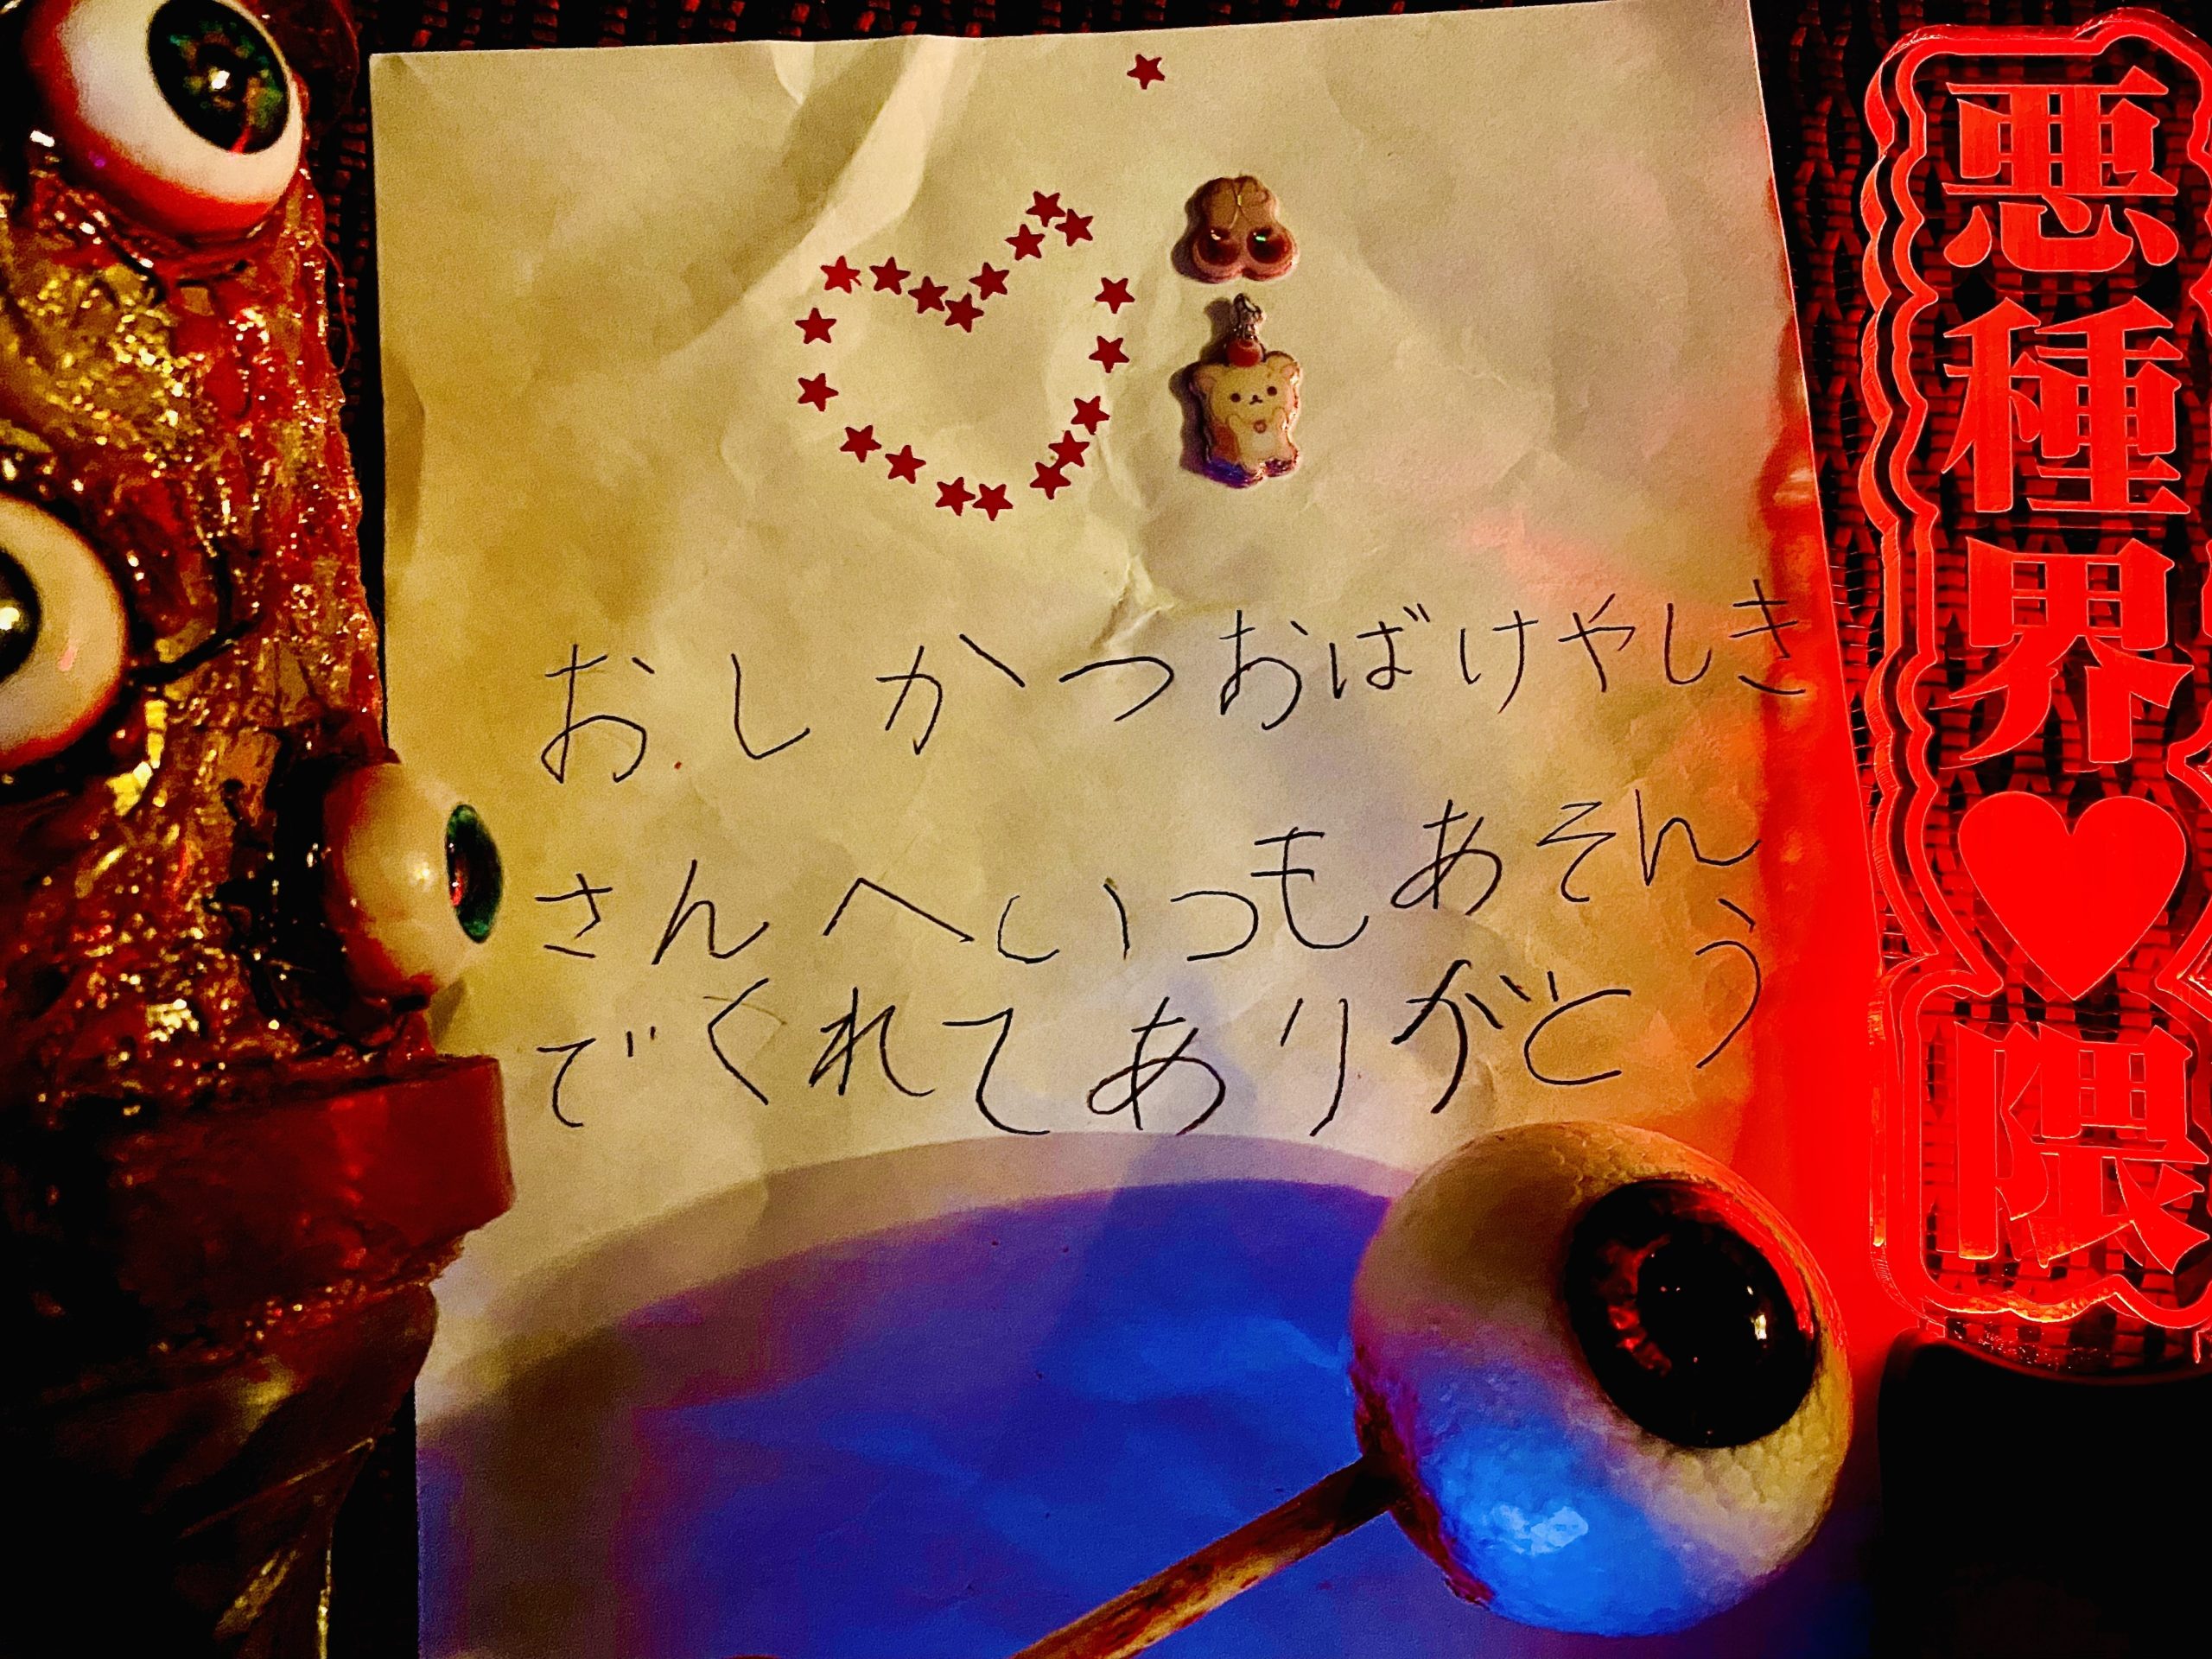 おしかつおばけやしき
さんへいつもあそん
でくれてありがとう
悪種界♥隈